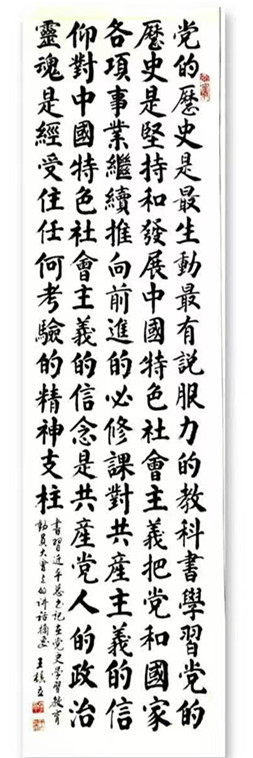 党的歷史是最生動最有説服力的教科書學習党的
歷史是堅持和發展中國特色社會主義把党和國家
各項事業繼續推向前進的必修課對共產主義的信
仰對中國特色社會主義的信念是共產党人的政治
靈魂是經受住任何考驗的精神支柱
書習近平總書記在党史學習教育
動員大會上的講話摘要 王